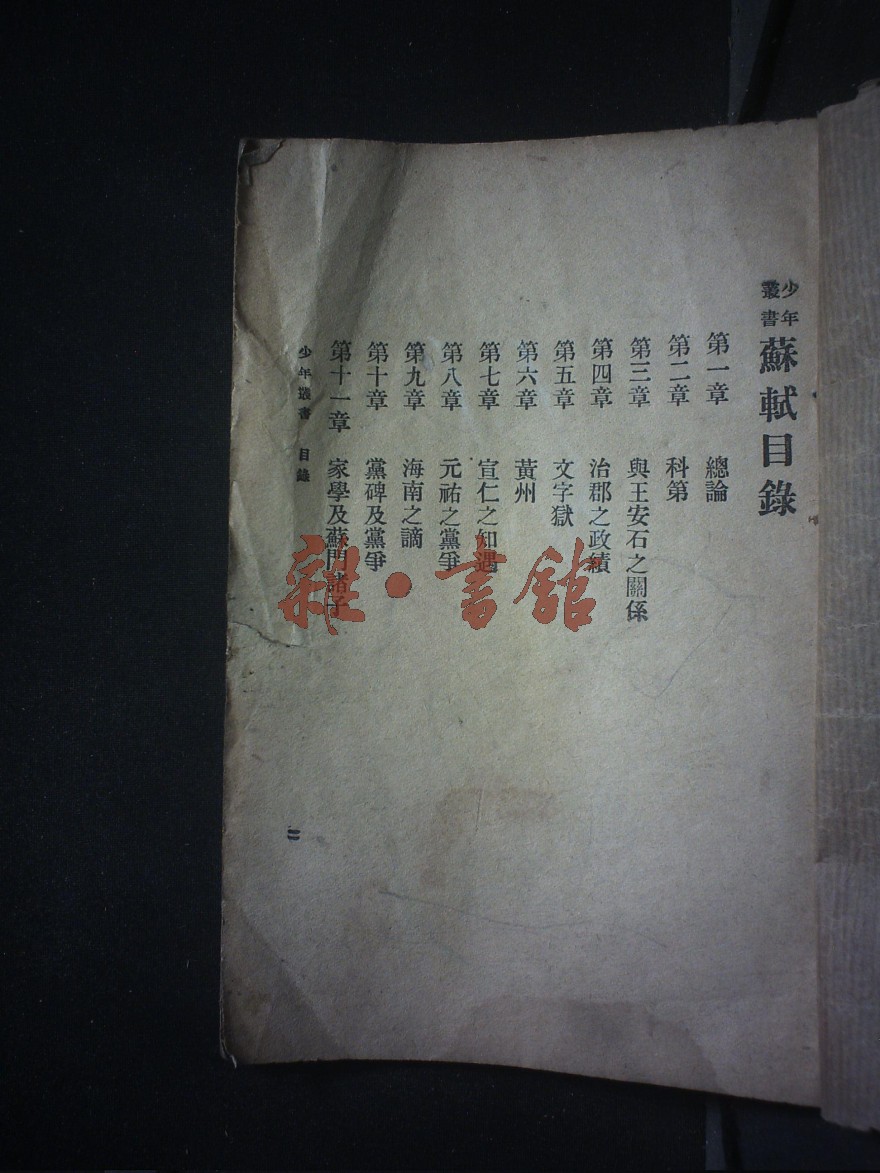 少年叢書 蘇軾目錄
第一章 總論
第二章 科第
第三章 與王安石之關係
第四章 治郡之政績
第五章 文字獄
第六章 黃州
第七章 宣仁之知遇
第八章 元祐之黨爭
第九章 海南之謫
第十章 黨碑及黨爭
第十一章 家學及蘇門諸子
少年叢書 目錄
二
雜·書館